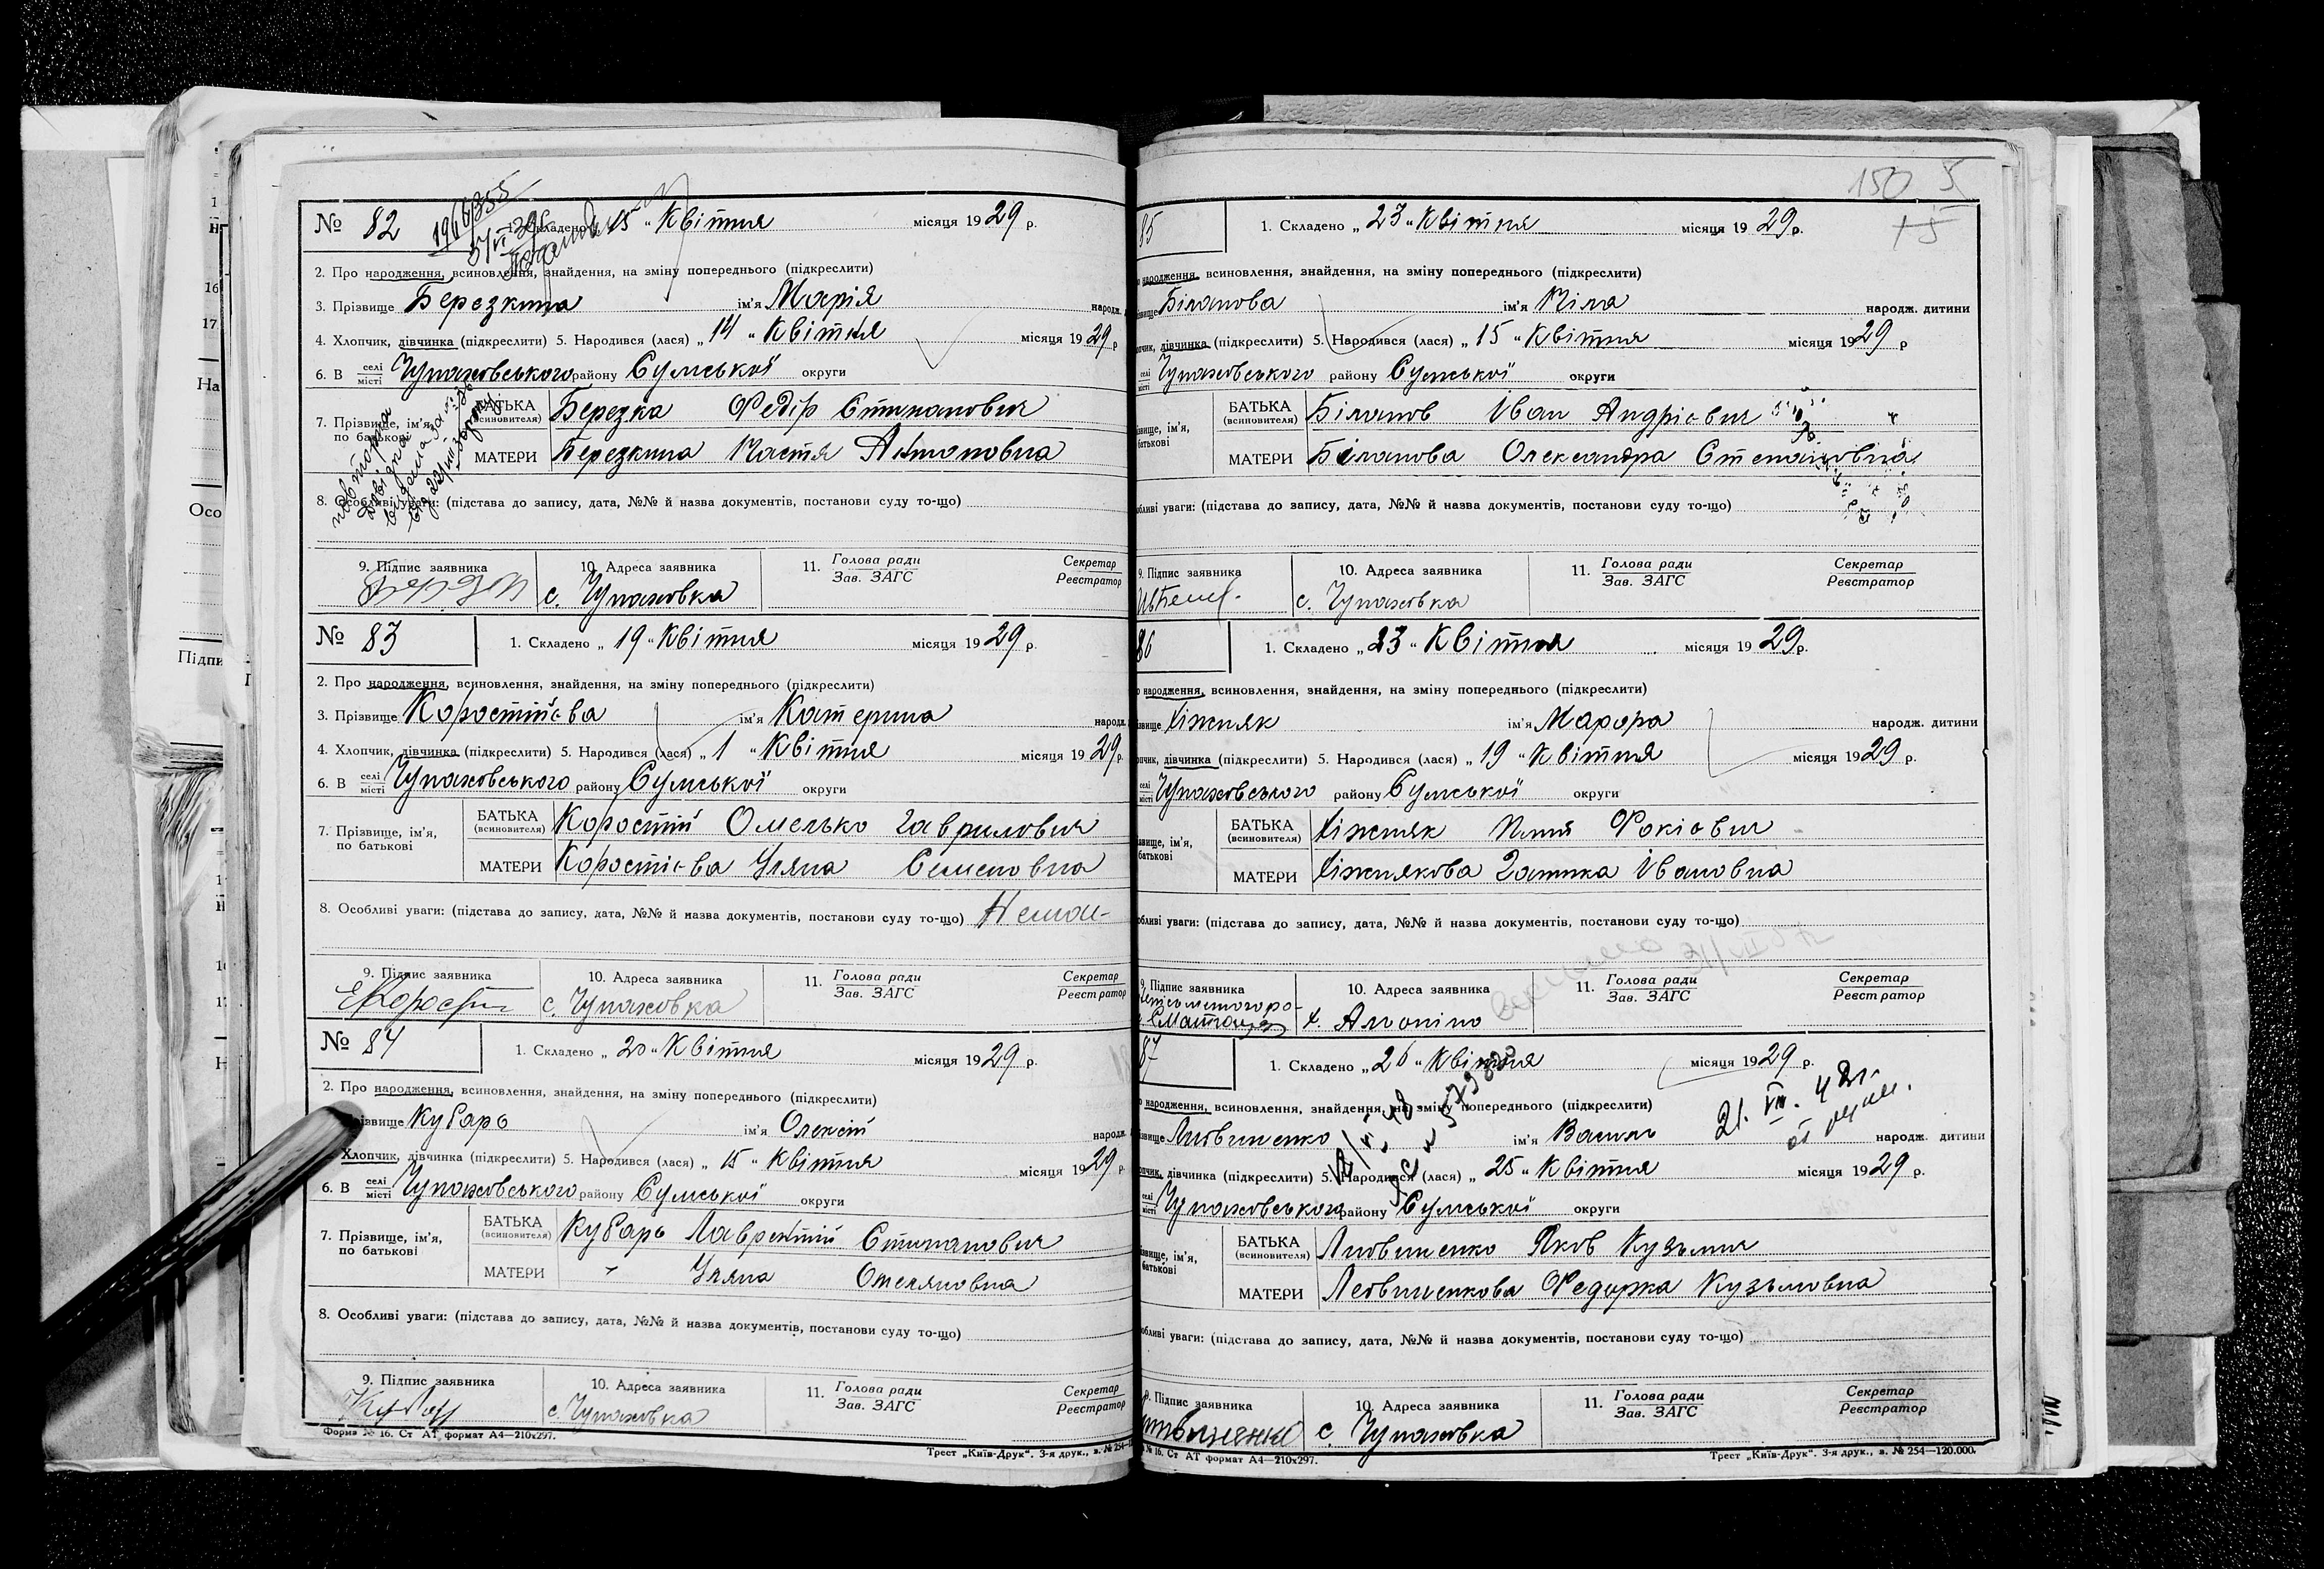 № 82
1. Складено „ 15 “ Квітня місяця 1929 р.
2. Про народження, всиновлення, знайдення, на зміну попереднього (підкреслити)
3. Прізвище Березкина ім'я Марія народж.
4. Хлопчик, дівчинка (підкреслити) 5. Народився (лася) „ 14 “ Квітня місяця 1929 р
6. В селі місті Чупаховського району Сумської округи
7. Прізвище, ім'я, по батькові
БАТЬКА (всиновителя) Березка Федір Стипанович
МАТЕРИ Березкина Настя Антоновна
повторна довідка видана за №
8. Особливі уваги: (підстава до запису, дата, №№ й назва документів, постанови суду то-що)
9. Підпис заявника
10. Адреса заявника с. Чупаховка
11. Голова ради Зав. ЗАГС
Секретар Реєстратор
№ 83
1. Складено „ 19 “ Квітня місяця 1929 р.
2. Про народження, всиновлення, знайдення, на зміну попереднього (підкреслити)
3. Прізвище Коростієва ім'я Катерина народж.
4. Хлопчик, дівчинка (підкреслити) 5. Народився (лася) „ 1 “ Квітня місяця 1929 р.
6. В селі місті Чупаховського району Сумської округи
7. Прізвище, ім'я, по батькові
БАТЬКА (всиновителя) Коростій Омелько Гаврилович
МАТЕРИ Коростієва Уляна Семеновна
8. Особливі уваги: (підстава до запису, дата, №№ й назва документів, постанови суду то-що) Немає
9. Підпис заявника
10. Адреса заявника с. Чупаховка
11. Голова ради Зав. ЗАГС
Секретар Реєстратор
№ 84
1. Складено „ 20 “ Квітня місяця 1929 р.
2. Про народження, всиновлення, знайдення, на зміну попереднього (підкреслити)
Кубарь ім'я Олексій народж.
Хлопчик, дівчинка (підкреслити) 5. Народився (лася) „ 15 “ Квітня місяця 1929 р.
6. В селі місті Чупаховського району Сумської округи
7. Прізвище, ім'я, по батькові
БАТЬКА (всиновителя) Кубарь Лаврентій Стипанович
МАТЕРИ " Уляна Омеляновна
8. Особливі уваги: (підстава до запису, дата, №№ й назва документів, постанови суду то-що)
9. Підпис заявника
10. Адреса заявника с. Чупаховка
11. Голова ради Зав. ЗАГС
Секретар Реєстратор
Форма № 16. Ст АТ формат А4—210х297.
Трест „Київ-Друк“. 3-я друк., в. № 254—
150 5
85
1. Складено „ 23 “ Квітня місяця 1929 р.
народження, всиновлення, знайдення, на зміну попереднього (підкреслити)
Біланова ім'я Ніла народж. дитини
дівчинка (підкреслити) 5. Народився (лася) „ 15 “ Квітня місяця 1929 р
селі місті Чупаховського району Сумської округи
БАТЬКА (всиновителя) Біланов Іван Андрієвич
МАТЕРИ Біланова Олександра Степановна
уваги: (підстава до запису, дата, №№ й назва документів, постанови суду то-що)
9. Підпис заявника
10. Адреса заявника с. Чупаховка
11. Голова ради Зав. ЗАГС
Секретар Реєстратор
86
1. Складено „ 23 “ Квітня місяця 1929 р.
народження, всиновлення, знайдення, на зміну попереднього (підкреслити)
Ніжняк ім'я народж. дитини
дівчинка (підкреслити) 5. Народився (лася) „ 19 “ Квітня місяця 1929 р.
селі місті Чупаховського району Сумської округи
БАТЬКА (всиновителя) Ніжняк Фокієвич
МАТЕРИ Ніжнякова Ивановна
уваги: (підстава до запису, дата, №№ й назва документів, постанови суду то-що)
9. Підпис заявника
10. Адреса заявника х.
11. Голова ради Зав. ЗАГС
Секретар Реєстратор
87
1. Складено „ 26 “ Квітня місяця 1929 р.
народження, всиновлення, знайдення, на зміну попереднього (підкреслити)
Литвиненко ім'я Василь народж. дитини
дівчинка (підкреслити) 5. Народився (лася) „ 25 “ Квітня місяця 1929 р.
селі місті Чупаховського району Сумської округи
БАТЬКА (всиновителя) Литвиненко Яков Кузьмич
МАТЕРИ Литвиненкова Федорка Кузьмовна
уваги: (підстава до запису, дата, №№ й назва документів, постанови суду то-що)
9. Підпис заявника
10. Адреса заявника с. Чупаховка
11. Голова ради Зав. ЗАГС
Секретар Реєстратор
№ 16. Ст АТ формат А4—210х297.
Трест „Київ-Друк“. 3-я друк., в. № 254—120.000.